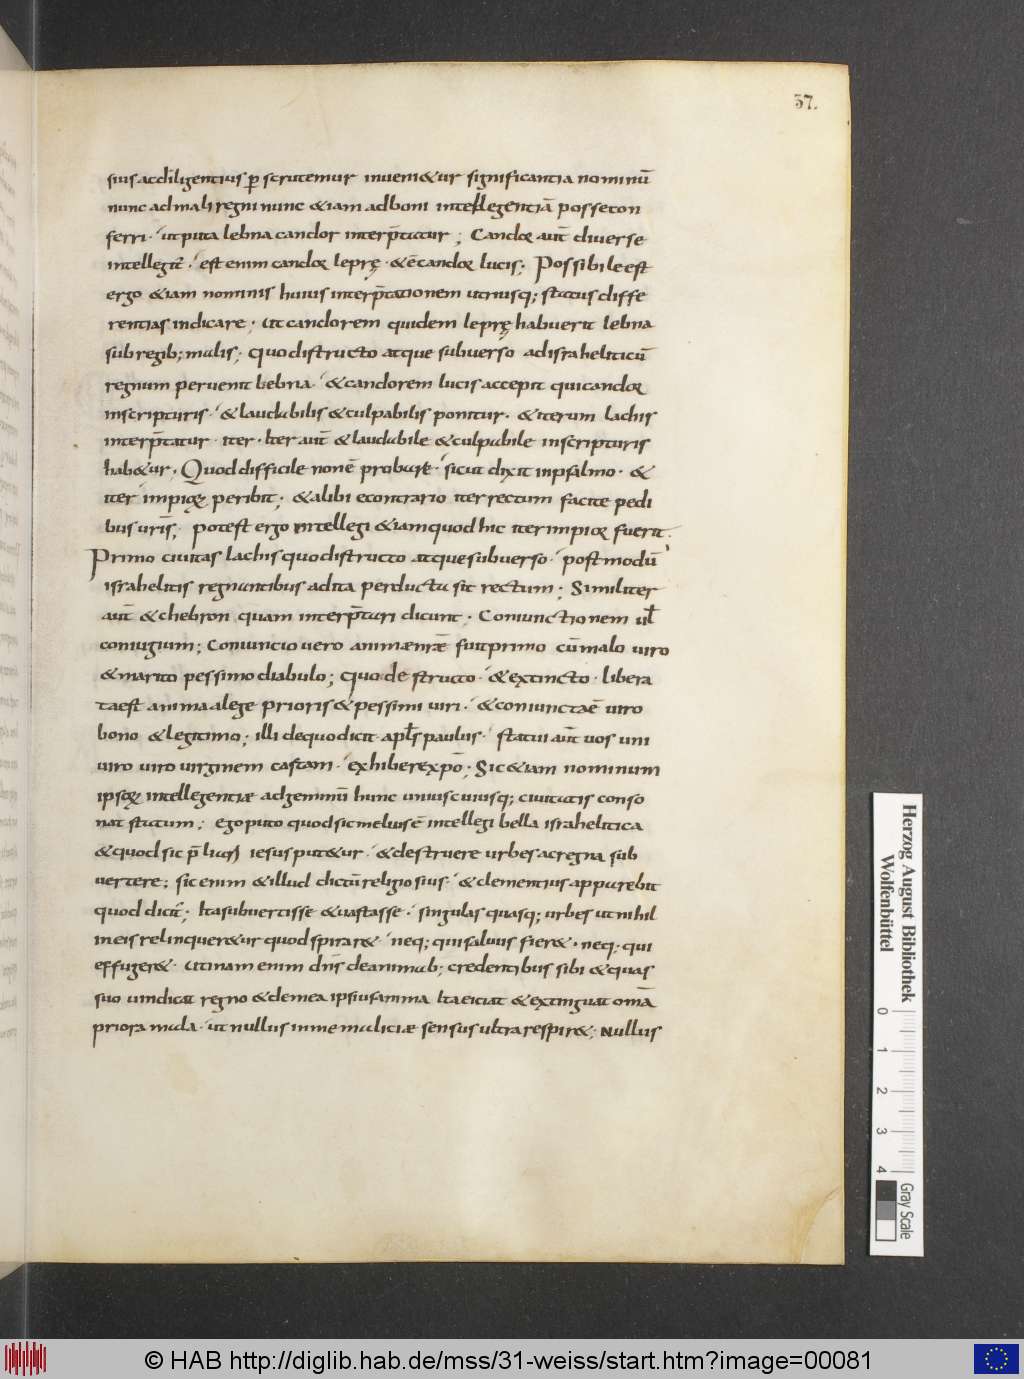 37.
sius ac diligentius p̄ scrutemur inueni&ur significantia nominū
nunc ad mali regni nunc &iam ad boni intellegentiā posse con
ferri · ut puta lebna candor interp̄tatur ; Candor aut̄ diuerse
intellegit̄ · est enim candor leprę · & ē candor lucis ; Possibile est
ergo &iam nominis huius interp̄tationem utriusq; status diffe
rentias indicare ; ut candorem quidem leprę habuerit lebna
sub regib; malis ; quo distructo atque subuerso ad israheliticū
regnum peruenit lebna · & candorem lucis accepit qui candor
in scripturis · & laudabilis & culpabilis ponitur · & iterum lachis
interp̄tatur · iter · Iter aut̄ & laudabile & culpabile in scripturis
hab&ur · Quod difficile non ē probare · sicut dixit in psalmo · &
iter impioꝝ peribit ; & alibi econtrario iter rectum facite pedi
bus uris̄ ; potest ergo intellegi &iam quod hic iter impior fuerit .
Primo ciuitas lachis quo distructo atque subuerso · post modū
israhelitis regnantibus adita perducta sit rectum ; Similiter
aut̄ & chebron quam interp̄tari dicunt · Coniunctionem ul̄
coniugium ; Coniunctio uero animæ nr̄æ fuit primo cū malo uiro
& marito pessimo diabulo ; quo destructo · & extincto · libera
ta est anima a lege prioris & pessimi uiri · & coniuncta ē uiro
bono & legitimo ; illi de quo dicit apl̄s paulus · statui aut̄ uos uni
uiro uiro uirginem castam · exhibere xp̄o ; Sic &iam nominum
ipsoꝝ intellegentiæ ad geminū hunc uniuscuiusq; ciuitatis conso
nat statum ; ego puto quod sic melius ē intellegi bella israhelitica
& quod sic p̄liari iesus put&ur · & destruere urbes ac regna sub
uertere ; sic enim & illud dictū religiosius · & clementius apparebit
quod dicit̄ ; Ita subuertisse & uastasse · singulas quasq; urbes ut nihil
in eis relinquer&ur quod spirar& · neq; qui saluus fier& · neq; qui
effuger& · Utinam enim dn̄s de animab; credentibus sibi & quas
suo uindicat regno & de mea ipsius anima Ita eiciat & extinguat om̄a
priora mala · ut nullus in me maliciæ sensus ultra respir& ; Nullus
Herzog August Bibliothek
Wolfenbüttel
0 1 2 3 4
Gray Scale
© HAB http://diglib.hab.de/mss/31-weiss/start.htm?image=00081